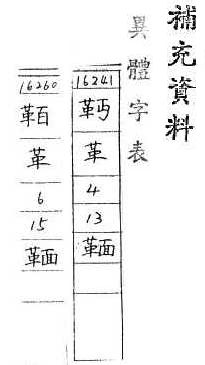 補充資料
異體字表
16241
革
4
13
16260
革
6
15